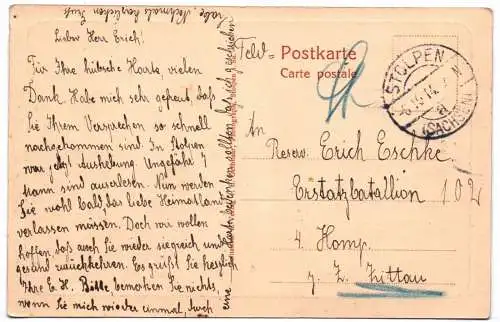 rale Nochmals herzlichen Gruß
Lieber Herr Erich!
Für Ihre hübsche Karte, vielen
Dank. Habe mich sehr gefreut, daß
Sie Ihrem Versprechen so schnell
nachgekommen sind. In Stolpen
war jetzt Aushebung. Ungefähr 7
Mann sind auserlesen. Nun werden
Sie wohl bald das liebe Heimatland
verlassen müssen. Doch wir wollen
hoffen, daß auch Sie wieder siegreich und
gesund zurückkehren. Es grüßt Sie herzlich
Ihre E. H. Bitte bemerken Sie nichts,
wenn Sie mich wieder einmal, durch
eine Karte erfreuen sollten, daß ich geschrieben
Feld- Postkarte
Carte postale
STOLPEN
(SACHSEN)
An
Reserv. Erich Eschke
Erstatzbatallion 102
4. Komp.
z. Z. Zittau